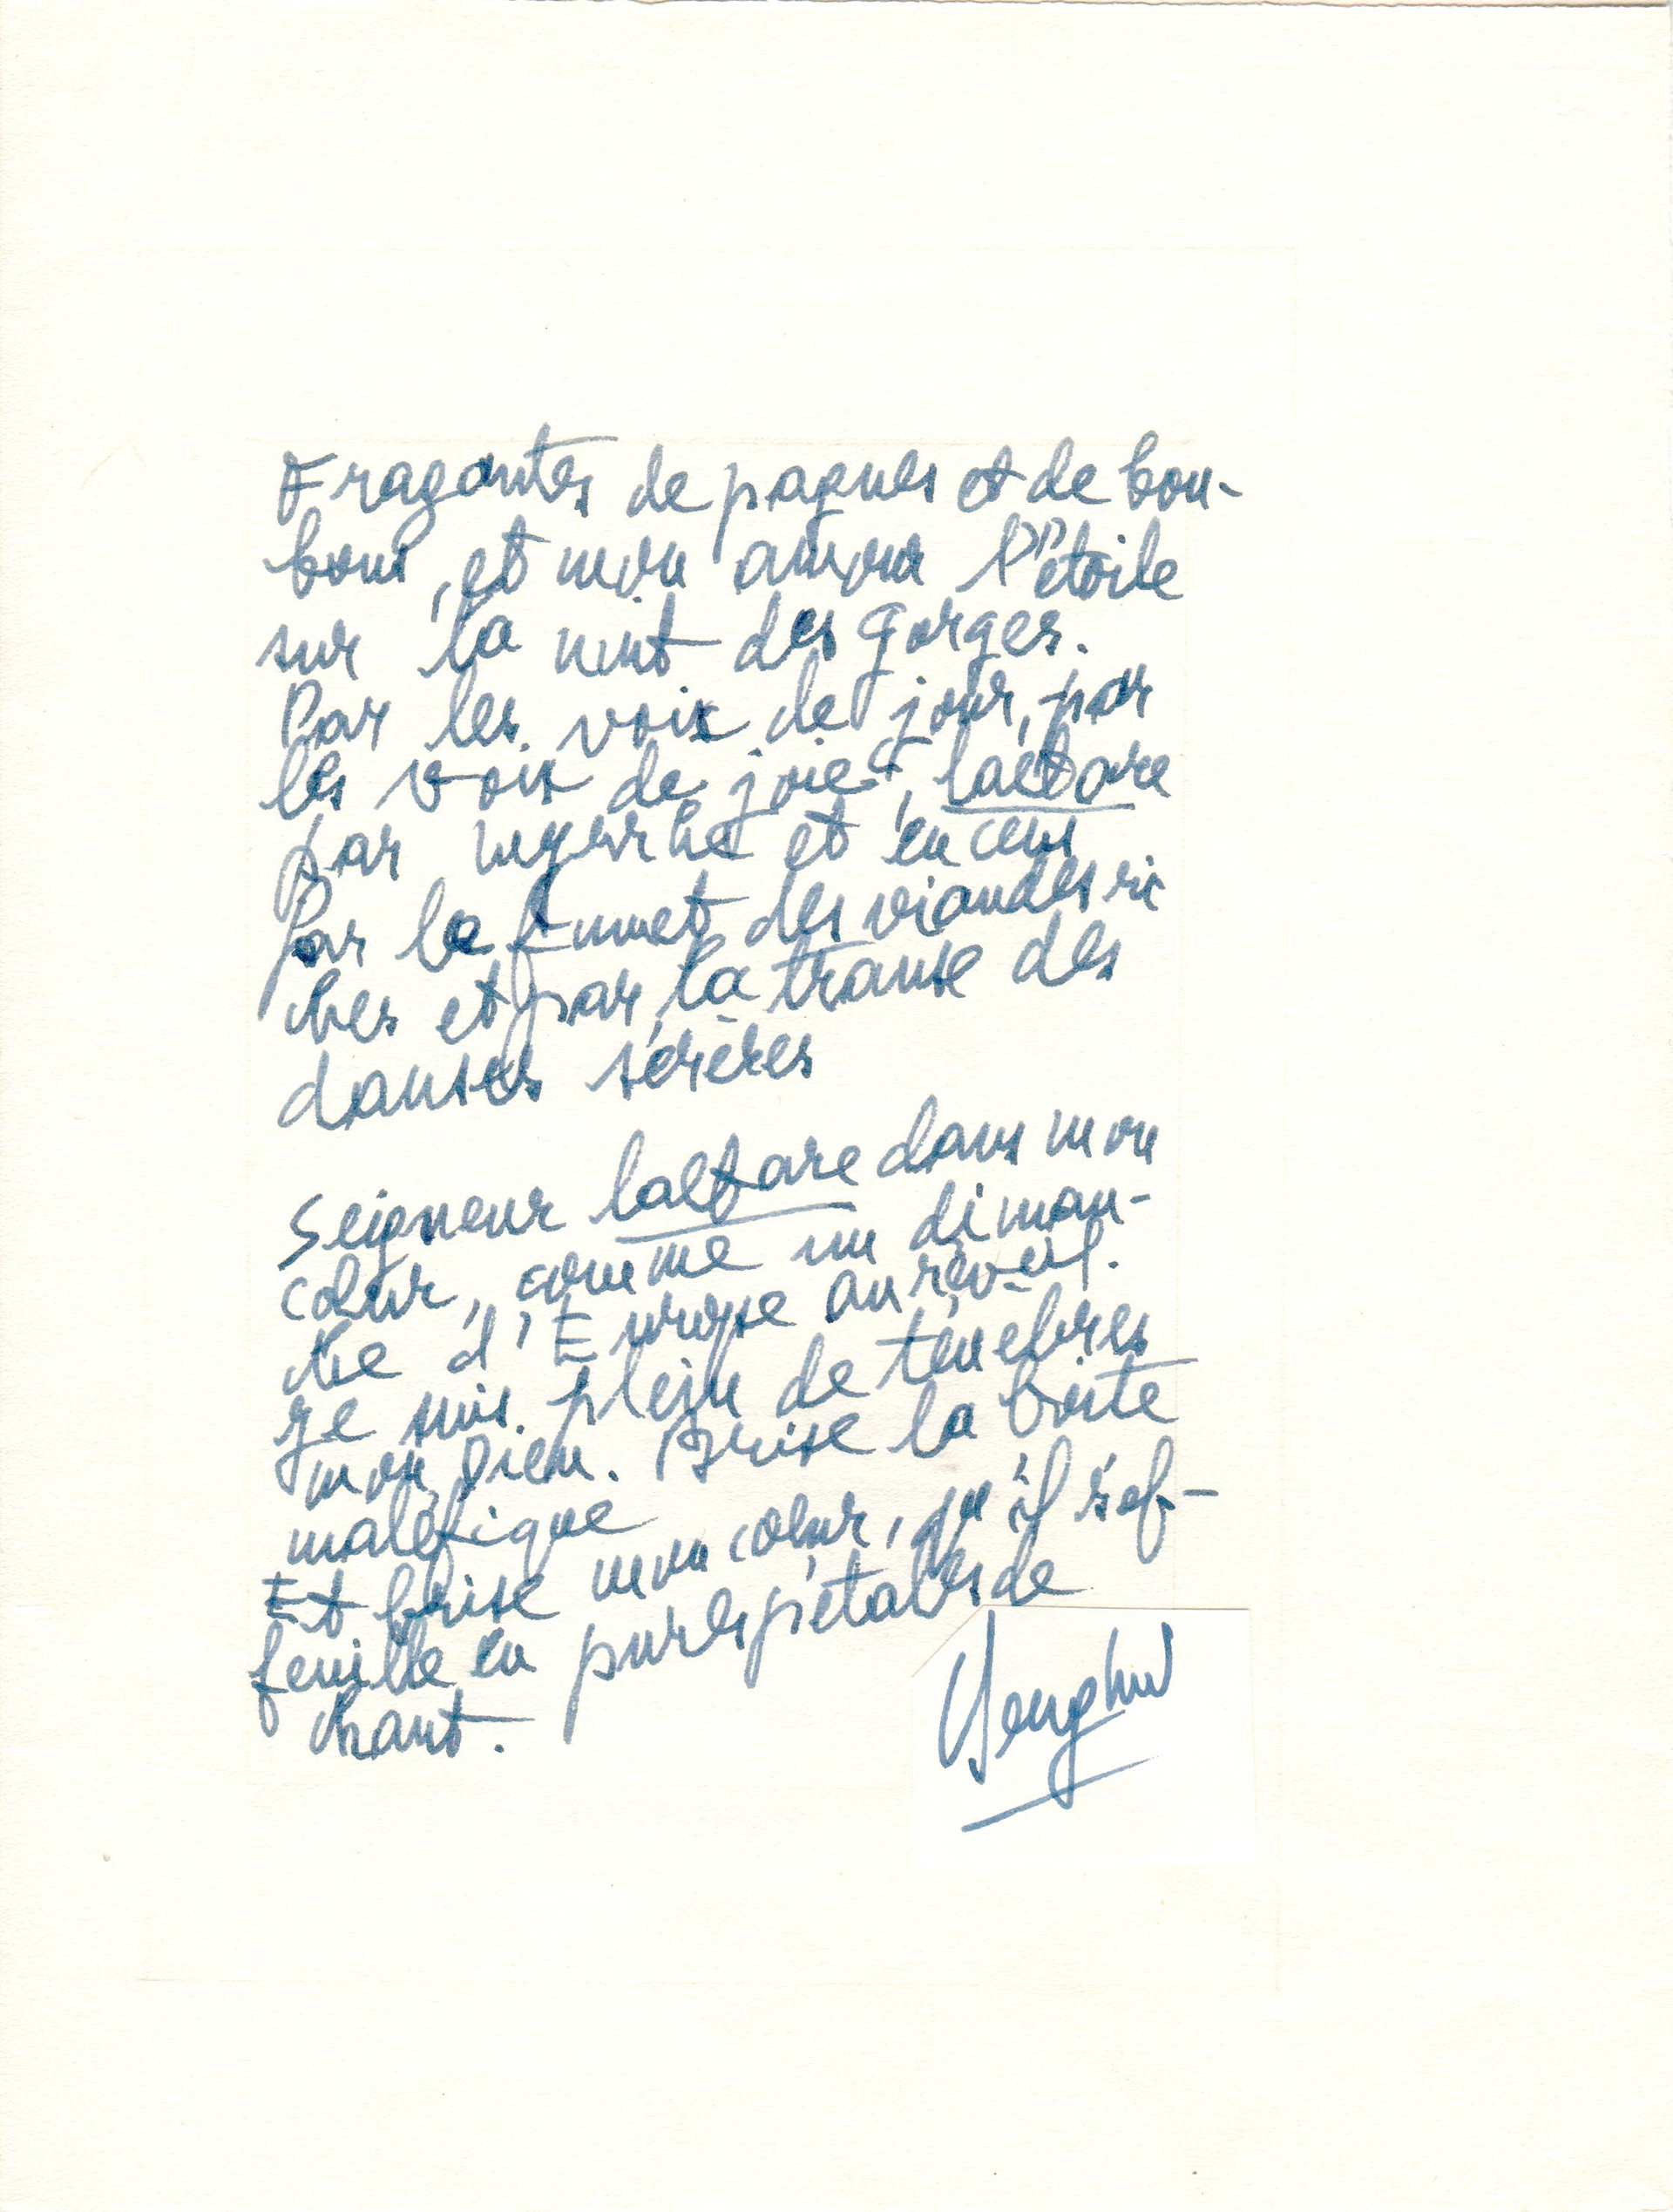 Fragantes de pagnes et de bou-
bous, et mon amour l'étoile
sur la nuit des gorges.
Par les voix de jour, par
les voix de joie, laetare
par myrrhe et encens
Par le fumet des viandes ri
ches et par la transe des
danses sérères
Seigneur laetare dans mon
cœur, comme un diman-
che d'Europe au réveil.
Je suis plein de ténèbres
mon Dieu. Brise la boite
maléfique
Et brise mon cœur, qu'il s'ef-
feuille en purs pétales de
chant.
Senghor